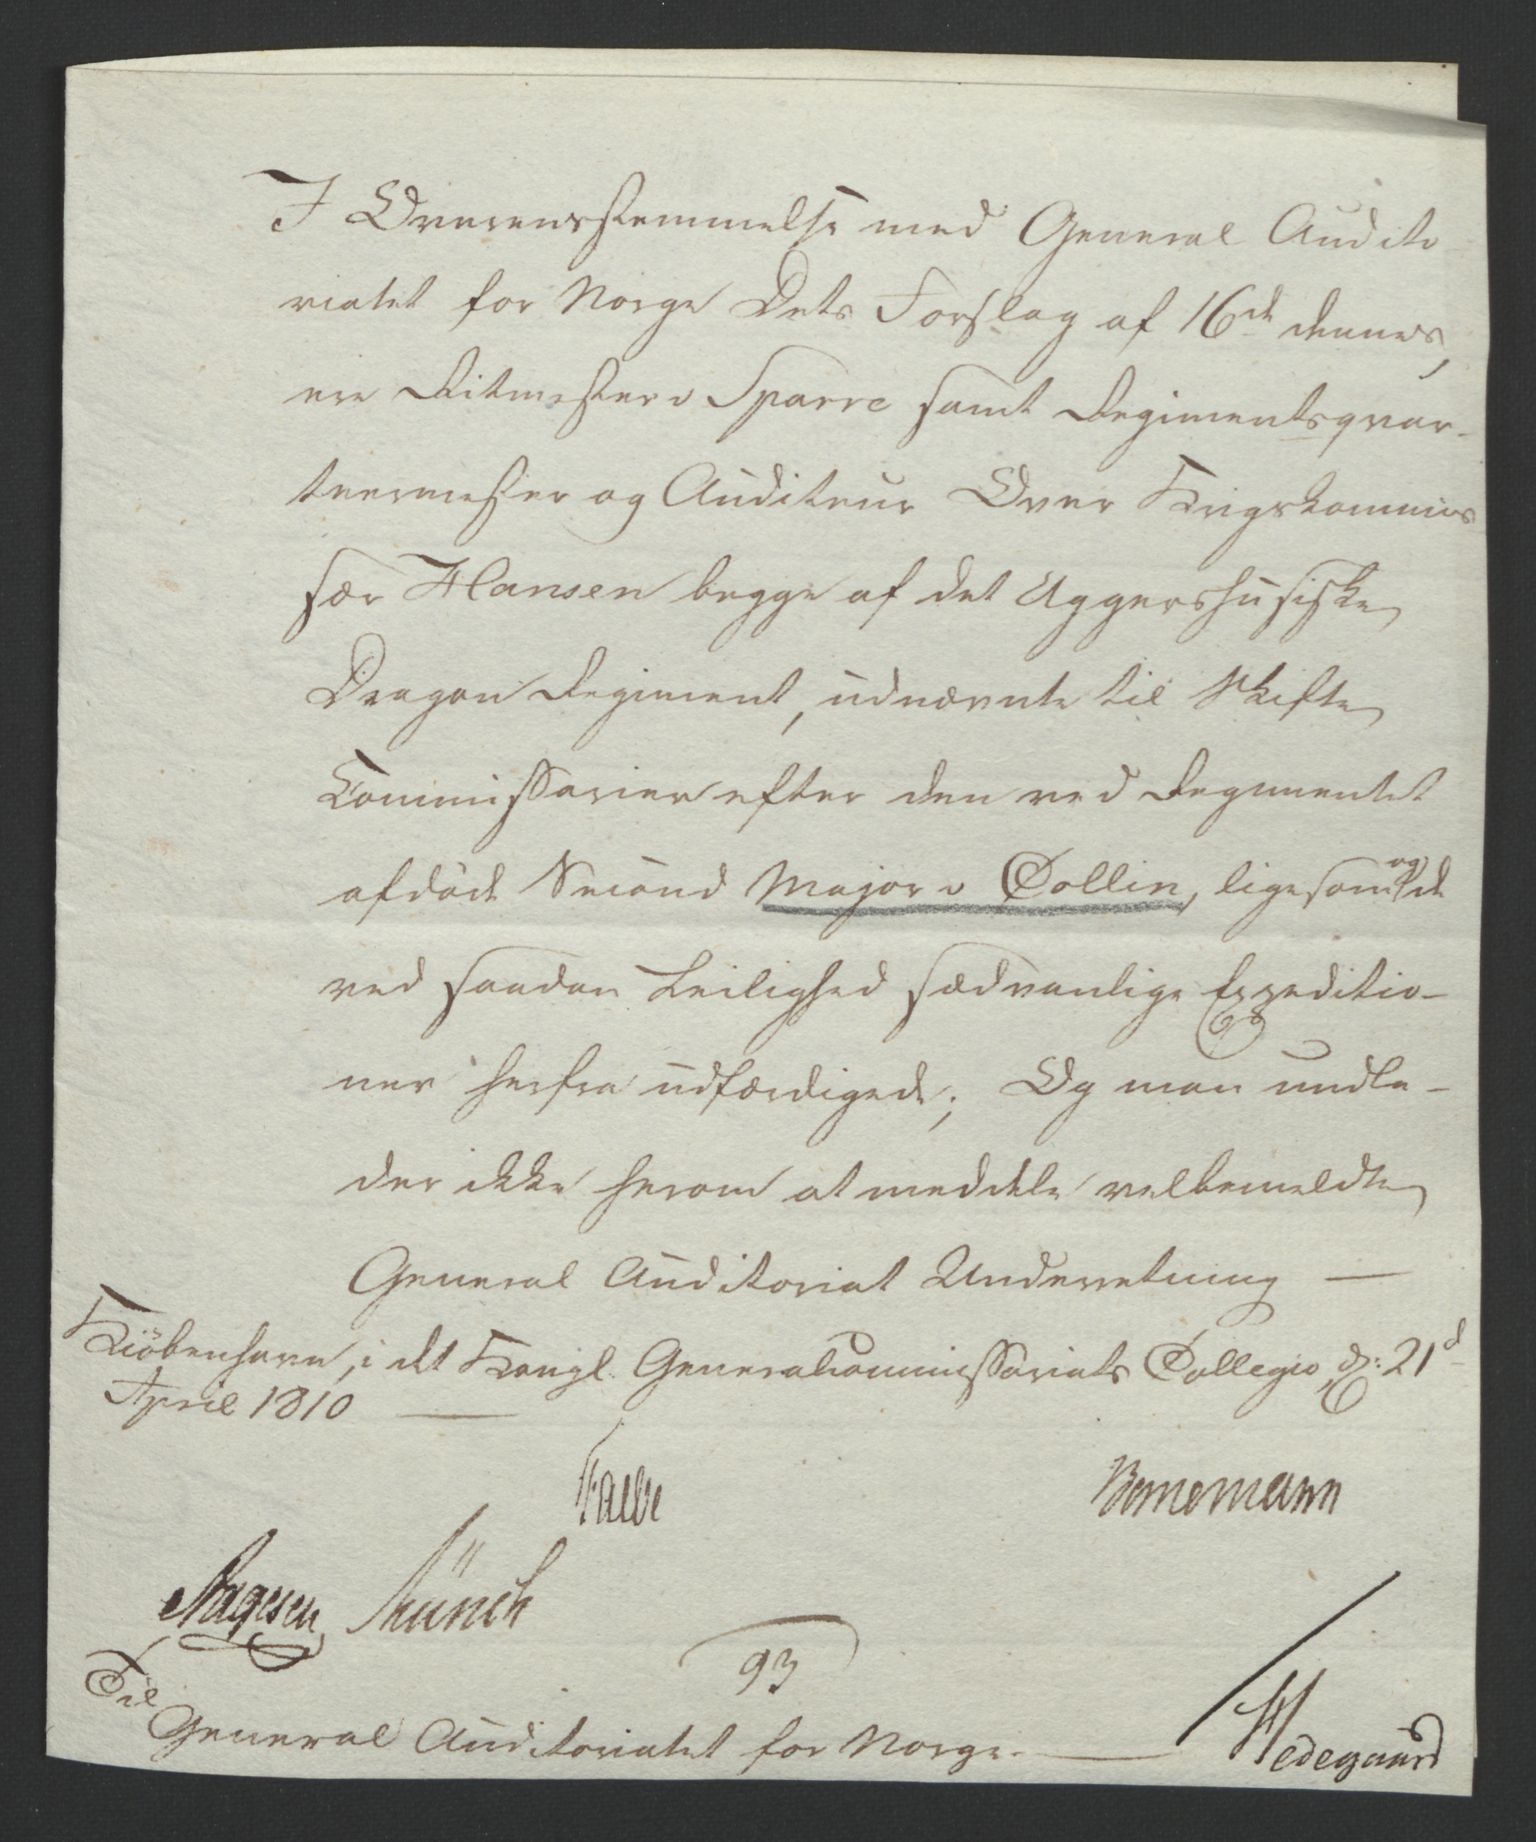 I Overensstemmelse med General Audito
riatet for Norge Dets Forslag af 16de dennes,
ere Ritmester v Sparre samt Regimentsqvar-
teermester og Auditeur Over Krigskommis
sær Hansen begge af det Aggershusiske
Dragon Regiment, udnævnte til Skifte
Commissarier efter den ved Regimentet
afdöde Second Major v Collin, ligesom og de
ved saadan Leilighed sædvanlige Expeditio-
ner herfra udfærdigede; Og man undla-
der ikke herom at meddele velbemeldte
General Auditoriat Underretning —
Kiöbenhavn, i det Kongl. Generalcommissariats Collegio, d: 21d
April 1810 —
Falbe Bornemann
Aagesen Münch
93
Til
General Auditoriatet for Norge. — Hedegaard